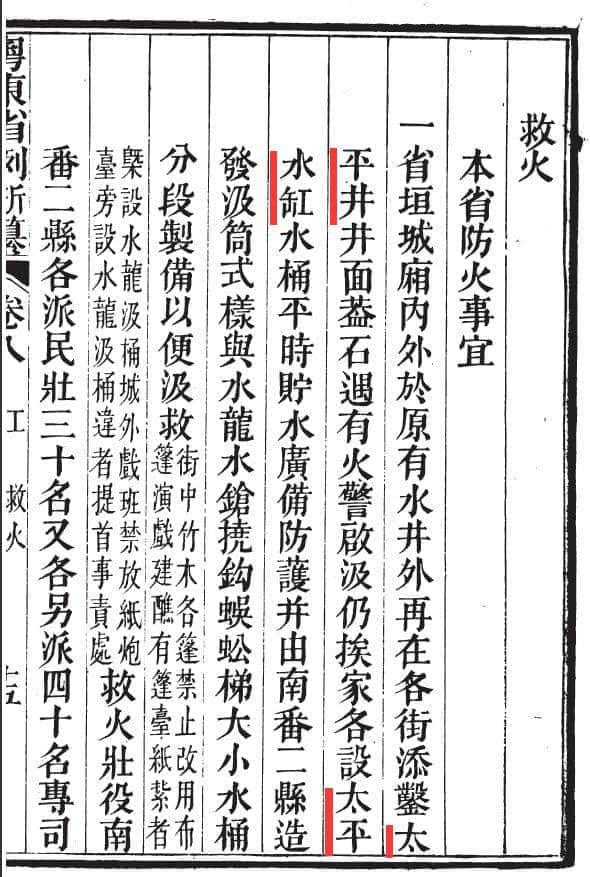 救火
本省防火事宜
一省垣城廂內外於原有水井外再在各街添鑿太
平井井面葢石遇有火警啟汲仍挨家各設太平
水缸水桶平時貯水廣備防護并由南番二縣造
發汲筒式樣與水龍水鎗撓鈎蜈蚣梯大小水桶
分段製備以便汲救街中竹木各篷禁止改用布
篷演戲建醮有篷臺紙紮者
槩設水龍汲桶城外戲班禁放紙炮
臺旁設水龍汲桶違者提首事責處救火壯役南
番二縣各派民壯三十名又各另派四十名專司
粵東省例新纂 卷八 工 救火 十五